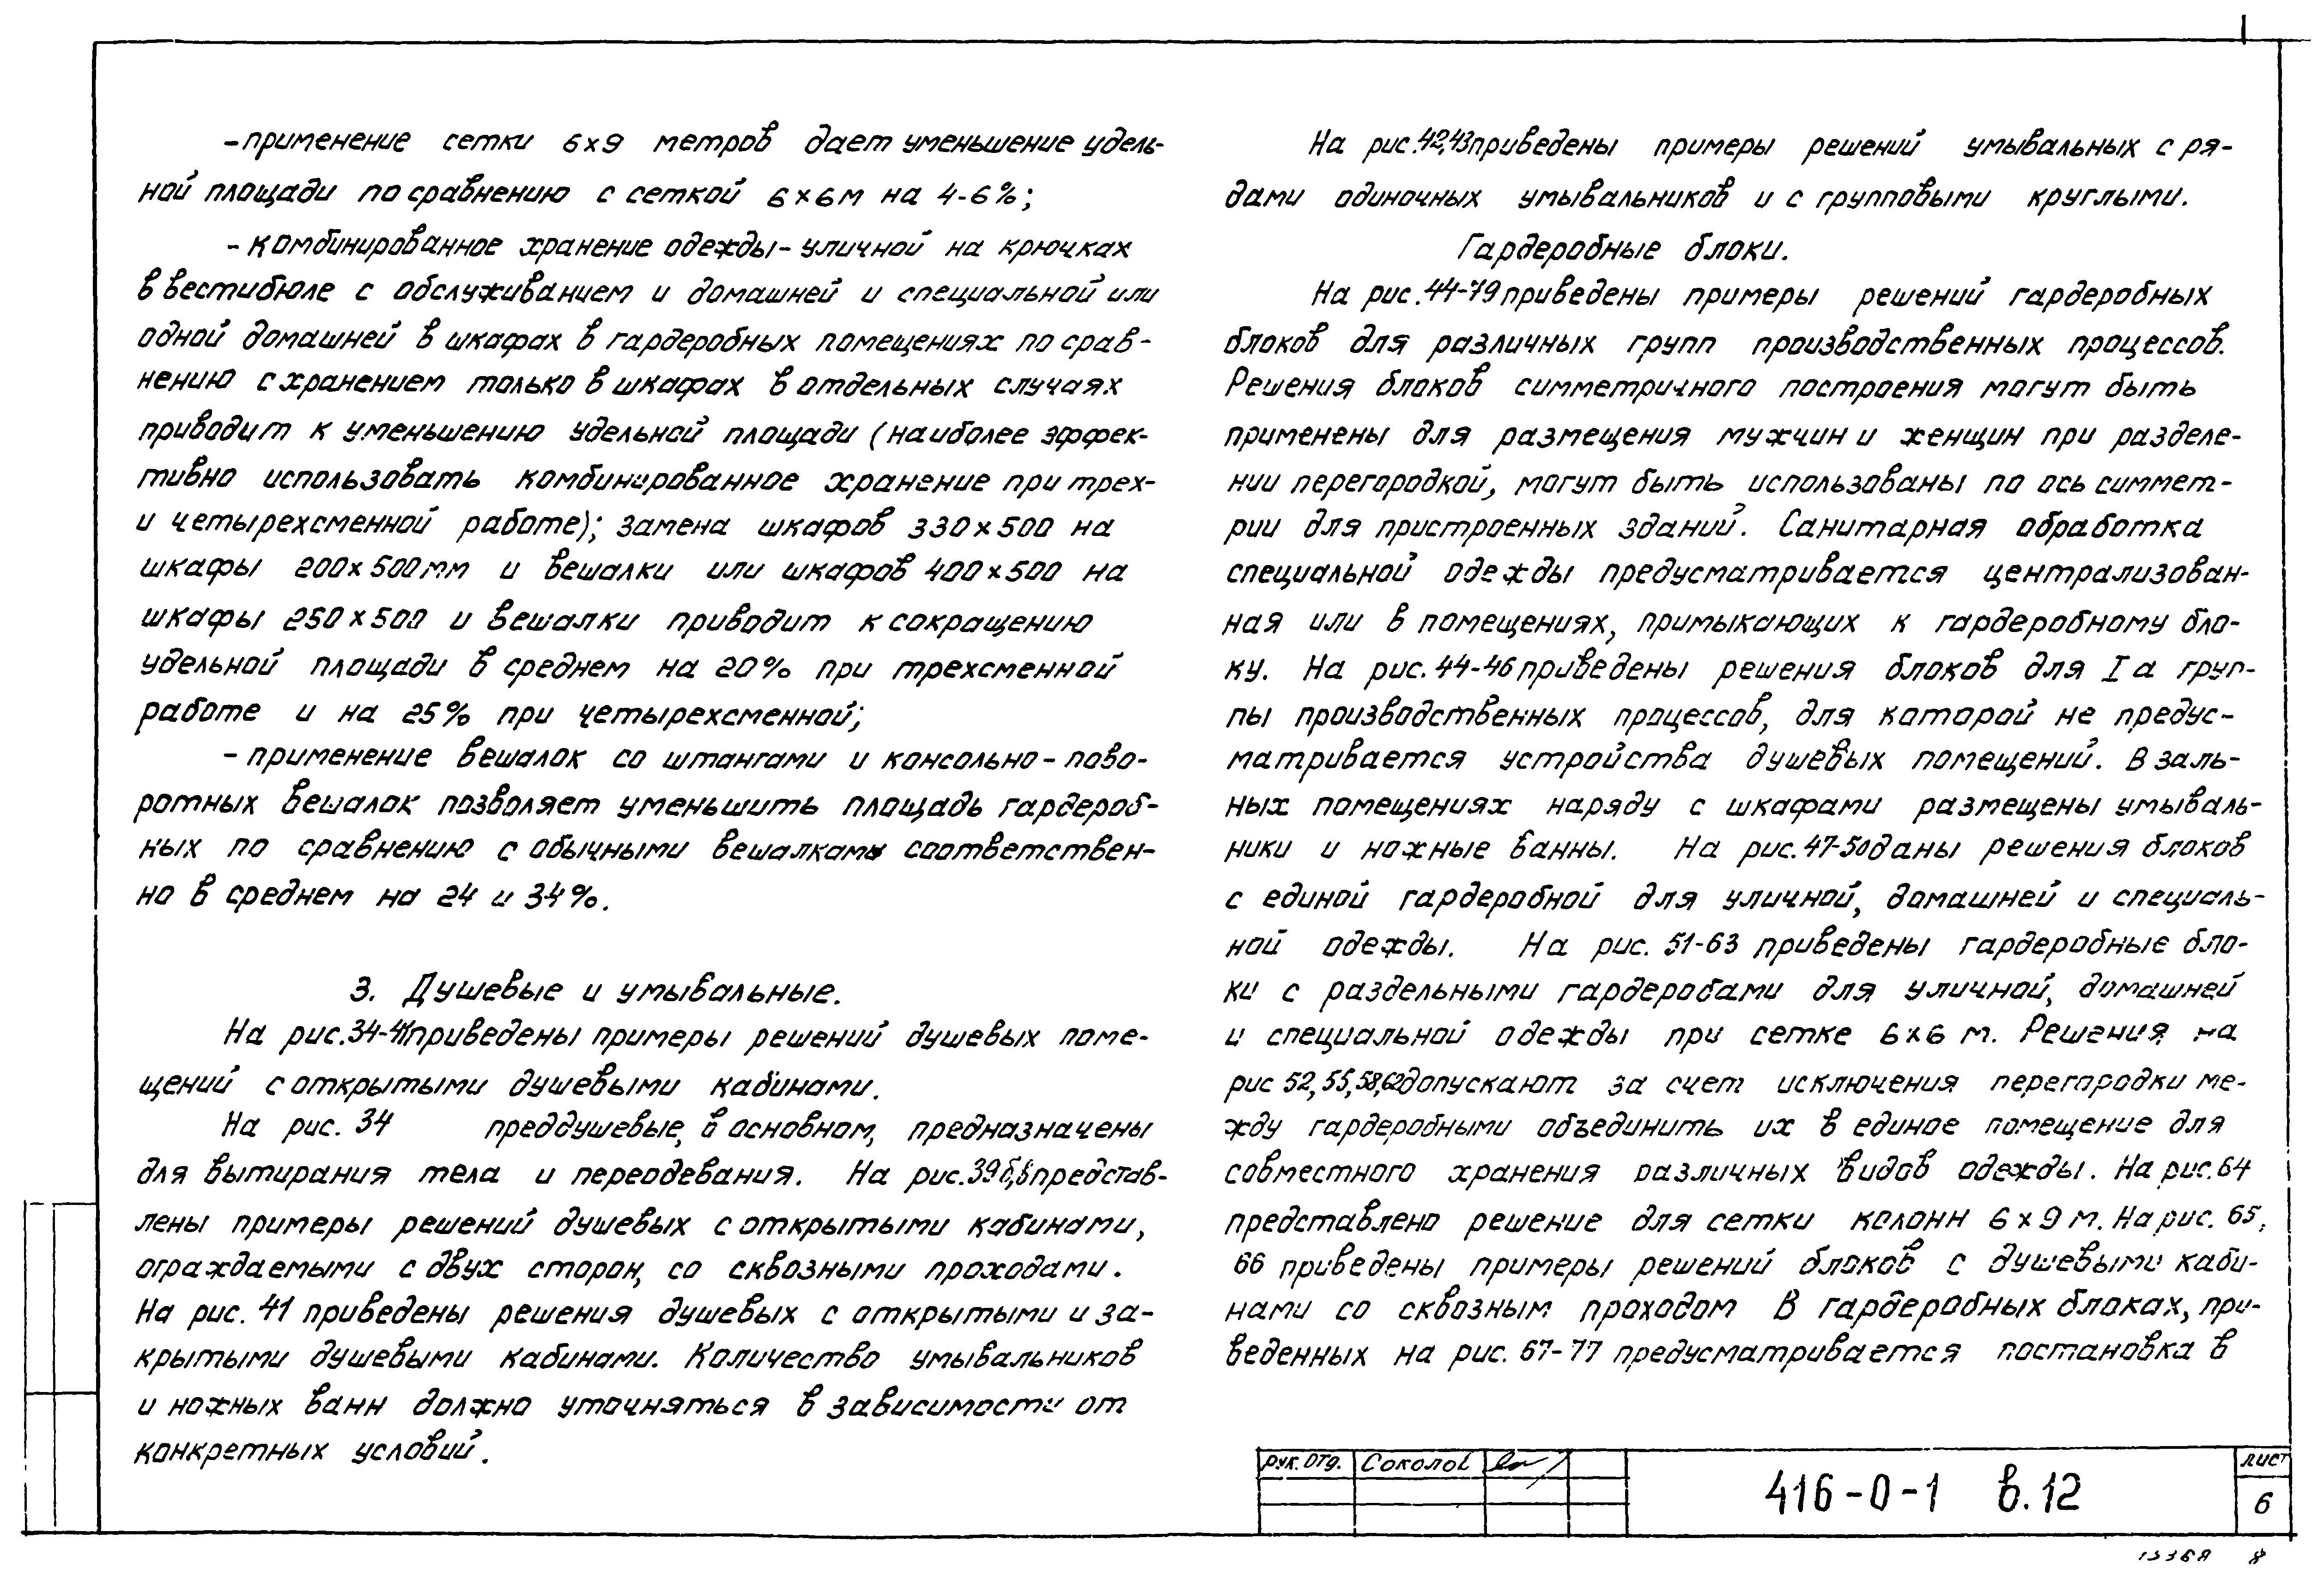 -применение сетки 6×9 метров дает уменьшение удель-
ной площади по сравнению с сеткой 6×6м на 4-6%;
-комбинированное хранение одежды-уличной на крючках
в вестибюле с обслуживанием и домашней и специальной или
одной домашней в шкафах в гардеробных помещениях по срав-
нению с хранением только в шкафах в отдельных случаях
приводит к уменьшению удельной площади (наиболее эффек-
тивно использовать комбинированное хранение при трех-
и четырехсменной работе); замена шкафов 330×500 на
шкафы 200×500мм и вешалки или шкафов 400×500 на
шкафы 250×500 и вешалки приводит к сокращению
удельной площади в среднем на 20% при трехсменной
работе и на 25% при четырехсменной;
-применение вешалок со штангами и консольно-пово-
ротных вешалок позволяет уменьшить площадь гардероб-
ных по сравнению с обычными вешалками соответствен-
но в среднем на 24 и 34%.
3. Душевые и умывальные.
На рис.34-41приведены примеры решений душевых поме-
щений с открытыми душевыми кабинами.
На рис. 34 преддушевые, в основном, предназначены
для вытирания тела и переодевания. На рис.39б,в представ-
лены примеры решений душевых с открытыми кабинами,
ограждаемыми с двух сторон, со сквозными проходами.
На рис. 41 приведены решения душевых с открытыми и за-
крытыми душевыми кабинами. Количество умывальников
и ножных ванн должно уточняться в зависимости от
конкретных условий.
На рис.42,43приведены примеры решений умывальных с ря-
дами одиночных умывальников и с групповыми круглыми.
Гардеробные блоки.
На рис.44-79приведены примеры решений гардеробных
блоков для различных групп производственных процессов.
Решения блоков симметричного построения могут быть
применены для размещения мужчин и женщин при разделе-
нии перегородкой, могут быть использованы по ось симмет-
рии для пристроенных зданий. Санитарная обработка
специальной одежды предусматривается централизован-
ная или в помещениях, примыкающих к гардеробному бло-
ку. На рис. 44-46приведены решения блоков для Iа груп-
пы производственных процессов, для которой не предус-
матривается устройства душевых помещений. В заль-
ных помещениях наряду с шкафами размещены умываль-
ники и ножные ванны. На рис.47-50даны решения блоков
с единой гардеробной для уличной, домашней и специаль-
ной одежды. На рис. 51-63 приведены гардеробные бло-
ки с раздельными гардеробами для уличной, домашней
и специальной одежды при сетке 6×6 м. Решения на
рис 52,55,58,62допускают за счет исключения перегородки ме-
жду гардеробными объединить их в единое помещение для
совместного хранения различных видов одежды. На рис.64
представлено решение для сетки колонн 6×9м. На рис. 65,
66 приведены примеры решений блоков с душевыми каби-
нами со сквозным проходом В гардеробных блоках, при-
веденных на рис. 67-77 предусматривается постановка в
рук. отд. Соколов
416-0-1 в.12
лист
6
8